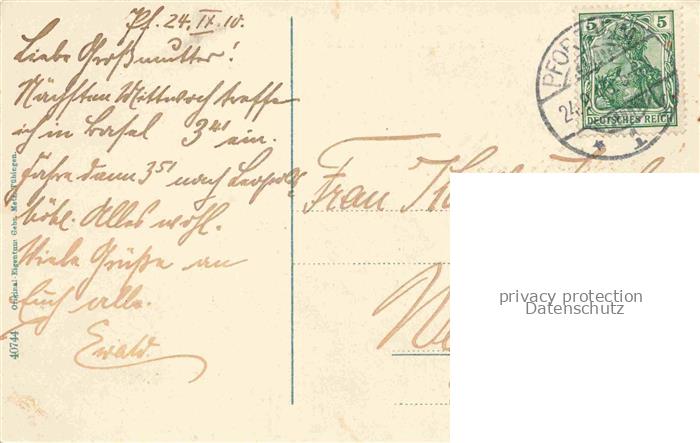 Pf. 24. IX. 10.
Liebe Großmutter!
Nächsten Mittwoch treffe
ich in Basel 3 41 ein.
Fahre dann 3 51 nach Leopolds
höhe. Alles wohl.
Viele Grüße an
Euch alle.
Ewald.
40744 Original-Eigentum Gebr. Metz, Tübingen
5 5
DEUTSCHES REICH
PFORZ
24.9
1
Frau
privacy protection
Datenschutz